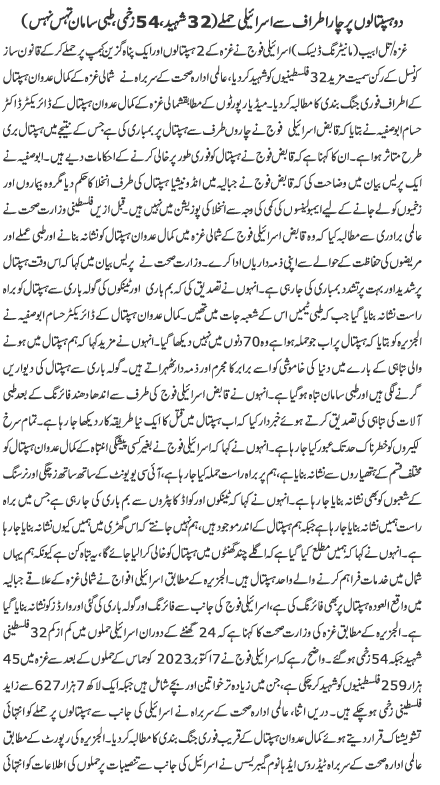 دو ہسپتالوں پر چار اطراف سے اسرائیلی حملے (32 شہید، 54 زخمی، طبی سامان تہس نہس)
غزہ/تل ابیب (مانیٹرنگ ڈیسک) اسرائیلی فوج نے غزہ کے 2 ہسپتالوں اور ایک پناہ گزین کیمپ پر حملے کر کے قانون ساز
کونسل کے رکن سمیت مزید 32 فلسطینیوں کو شہید کر دیا، عالمی ادارہ صحت کے سربراہ نے شمالی غزہ کے کمال عدوان ہسپتال
کے اطراف فوری جنگ بندی کا مطالبہ کر دیا۔ میڈیا رپورٹوں کے مطابق شمالی غزہ کے کمال عدوان ہسپتال کے ڈائریکٹر ڈاکٹر
حسام ابو صفیہ نے بتایا کہ قابض اسرائیلی فوج نے چاروں طرف سے ہسپتال پر بمباری کی ہے جس کے نتیجے میں ہسپتال بری
طرح متاثر ہوا ہے۔ ان کا کہنا ہے کہ قابض فوج نے ہسپتال کو فوری طور پر خالی کرنے کے احکامات دیے ہیں۔ ابو صفیہ نے
ایک پریس بیان میں وضاحت کی کہ قابض فوج نے جبالیہ میں انڈونیشیا ہسپتال کی طرف انخلا کا حکم دیا مگر وہ بیماروں اور
زخمیوں کو لے جانے کے لیے ایمبولینسوں کی کمی کی وجہ سے انخلا کی پوزیشن میں نہیں ہیں۔ قبل ازیں فلسطینی وزارت صحت نے
عالمی برادری سے مطالبہ کیا کہ وہ قابض اسرائیلی فوج کے شمالی غزہ میں کمال عدوان ہسپتال کو نشانہ بنانے اور طبی عملے اور
مریضوں کی حفاظت کے حوالے سے اپنی ذمہ داریاں ادا کرے۔ وزارت صحت نے پریس بیان میں کہا کہ اس وقت ہسپتال
پر شدید اور بہت پر تشدد بمباری کی جا رہی ہے۔ انہوں نے تصدیق کی کہ بم باری اور ٹینکوں کی گولہ باری سے ہسپتال کو براہ
راست نشانہ بنایا گیا جب کہ طبی ٹیمیں اس کے شعبہ جات میں تھیں۔ کمال عدوان ہسپتال کے ڈائریکٹر حسام ابو صفیہ نے
الجزیرہ کو بتایا کہ ہسپتال پر اب جو حملہ ہوا ہے وہ 70 دنوں میں نہیں دیکھا گیا۔ انہوں نے مزید کہا کہ ہم ہسپتال میں ہونے
والی تباہی کے بارے میں دنیا کی خاموشی کو اسے برابر کا مجرم اور ذمہ دار ٹھہراتے ہیں۔ گولہ باری سے ہسپتال کی دیواریں
گرنے لگی ہیں اور طبی سامان تباہ ہو گیا ہے۔ انہوں نے قابض اسرائیلی فوج کی طرف سے اندھا دھند فائرنگ کے بعد طبی
آلات کی تباہی کی تصدیق کرتے ہوئے خبردار کیا کہ اب ہسپتال میں قتل کا ایک نیا طریقہ کار دیکھا جا رہا ہے۔ تمام سرخ
لکیروں کو خطرناک حد تک عبور کیا جا رہا ہے۔ انہوں نے کہا کہ اسرائیلی فوج نے بغیر کسی پیشگی انتباہ کے کمال عدوان ہسپتال کو
مختلف قسم کے ہتھیاروں سے نشانہ بنایا ہے، ہم پر براہ راست حملہ کیا جا رہا ہے، آئی سی یو یونٹ کے ساتھ ساتھ زچگی اور نرسنگ
کے شعبوں کو بھی نشانہ بنایا جا رہا ہے۔ انہوں نے کہا کہ ٹینکوں اور کواڈ کاپٹروں سے بم باری کی جا رہی ہے جس میں براہ
راست ہمیں نشانہ بنایا جا رہا ہے جبکہ ہم ہسپتال کے اندر موجود ہیں، ہم نہیں جانتے کہ اس گھڑی میں ہمیں کیوں نشانہ بنایا جا رہا
ہے۔ انہوں نے کہا کہ ہمیں مطلع کیا گیا ہے کہ اگلے چند گھنٹوں میں ہسپتال کو خالی کر لیا جائے گا، یہ تباہ کن ہے کیونکہ ہم یہاں
شمال میں خدمات فراہم کرنے والے واحد ہسپتال ہیں۔ الجزیرہ کے مطابق اسرائیلی افواج نے شمالی غزہ کے علاقے جبالیہ
میں واقع العودہ ہسپتال پر بھی فائرنگ کی ہے، اسرائیلی فوج کی جانب سے فائرنگ اور گولہ باری کی گئی اور وارڈز کو نشانہ بنایا گیا
ہے۔ الجزیرہ کے مطابق غزہ کی وزارت صحت کا کہنا ہے کہ 24 گھنٹے کے دوران اسرائیلی حملوں میں کم از کم 32 فلسطینی
شہید جبکہ 54 زخمی ہو گئے۔ واضح رہے کہ اسرائیلی فوج نے 7 اکتوبر 2023 کو حماس کے حملوں کے بعد سے غزہ میں 45
ہزار 259 فلسطینیوں کو شہید کر چکی ہے، جن میں زیادہ تر خواتین اور بچے شامل ہیں جبکہ ایک لاکھ 7 ہزار 627 سے زاید
فلسطینی زخمی ہو چکے ہیں۔ دریں اثنا، عالمی ادارہ صحت کے سربراہ نے اسرائیلی کی جانب سے ہسپتالوں پر حملے کو انتہائی
تشویشناک قرار دیتے ہوئے کمال عدوان ہسپتال کے قریب فوری جنگ بندی کا مطالبہ کر دیا۔ الجزیرہ کی رپورٹ کے مطابق
عالمی ادارہ صحت کے سربراہ ٹیڈروس ایڈہانوم گیبریسس نے اسرائیل کی جانب سے تنصیبات پر حملوں کی اطلاعات کو انتہائی